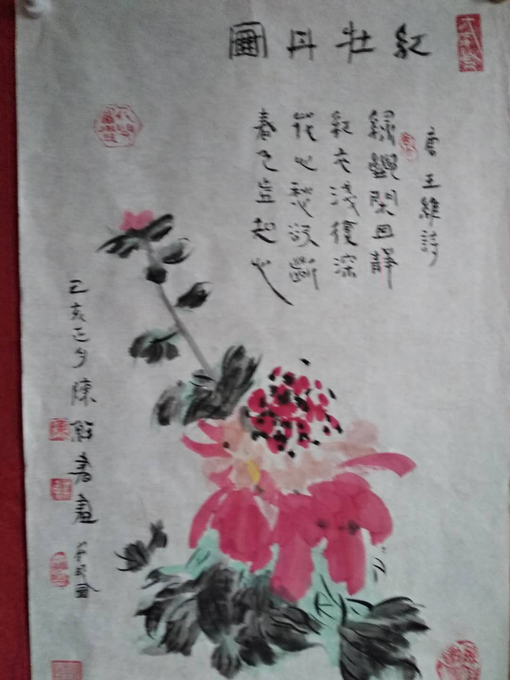 紅牡丹圖
唐王維詩
綠艷閑且靜
紅衣淺復深
花心愁欲斷
春色豈知心
己亥正月陳 書畫